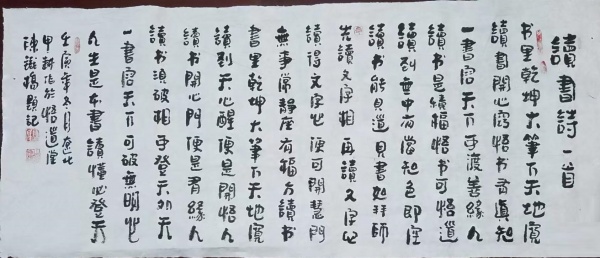 讀書詩一首
书里乾坤大筆下天地寬
讀書開心窍悟书有真知
一書容天下可渡善緣人
讀书是續福悟书可悟道
讀到無中有當知色即空
讀书能見道見書如拜師
先讀文字相再讀文字心
讀得文字心便可開慧門
無事常靜座有福方讀书
書里乾坤大筆下天地寬
讀到天心醒便是開悟人
讀书開心門便是有緣人
讀书須破相可登天外天
一書容天下可破無明心
人生是本書讀懂必登天
壬寅年冬月
甲作於悟道堂
陳題記